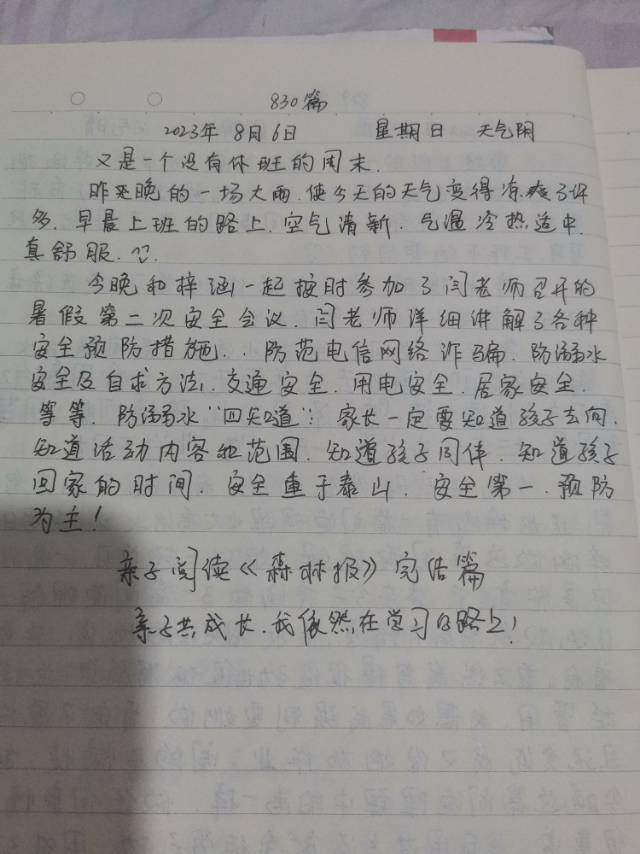 830篇
2023年8月6日 星期日 天气阴
又是一个没有休班的周末.
昨天晚的一场大雨.使今天的天气变得凉爽了许
多.早晨上班的路上.空气清新.气温冷热适中.
真舒服.
今晚和梓涵一起按时参加了闫老师召开的
暑假第二次安全会议.闫老师详细讲解了各种
安全预防措施..防范电信网络诈骗.防溺水
安全及自求方法.交通安全.用电安全.居家安全.
等等.防溺水"四知道":家长一定要知道孩子去向.
知道活动内容和范围.知道孩子同伴.知道孩子
回家的时间.安全重于泰山.安全第一.预防
为主!
亲子阅读《森林报》完结篇
亲子共成长.我依然在学习的路上!